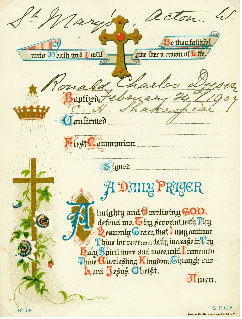 St Mary's, Acton. W.
Be thou faithful
unto Death and I will give thee a crown of Life.
Ronald Charles Dyson
Baptized February 24, 1907
C. S. Shakespear
Confirmed
First Communion
Signed
A DAILY PRAYER
Almighty and Everlasting GOD,
defend me, Thy servant with Thy
Heavenly Grace, that I may continue
Thine for ever and daily increase in Thy
Holy Spirit more and more until I come unto
Thine Everlasting Kingdom, through our
Lord Jesus Christ.
Amen.
S.P.C.K.